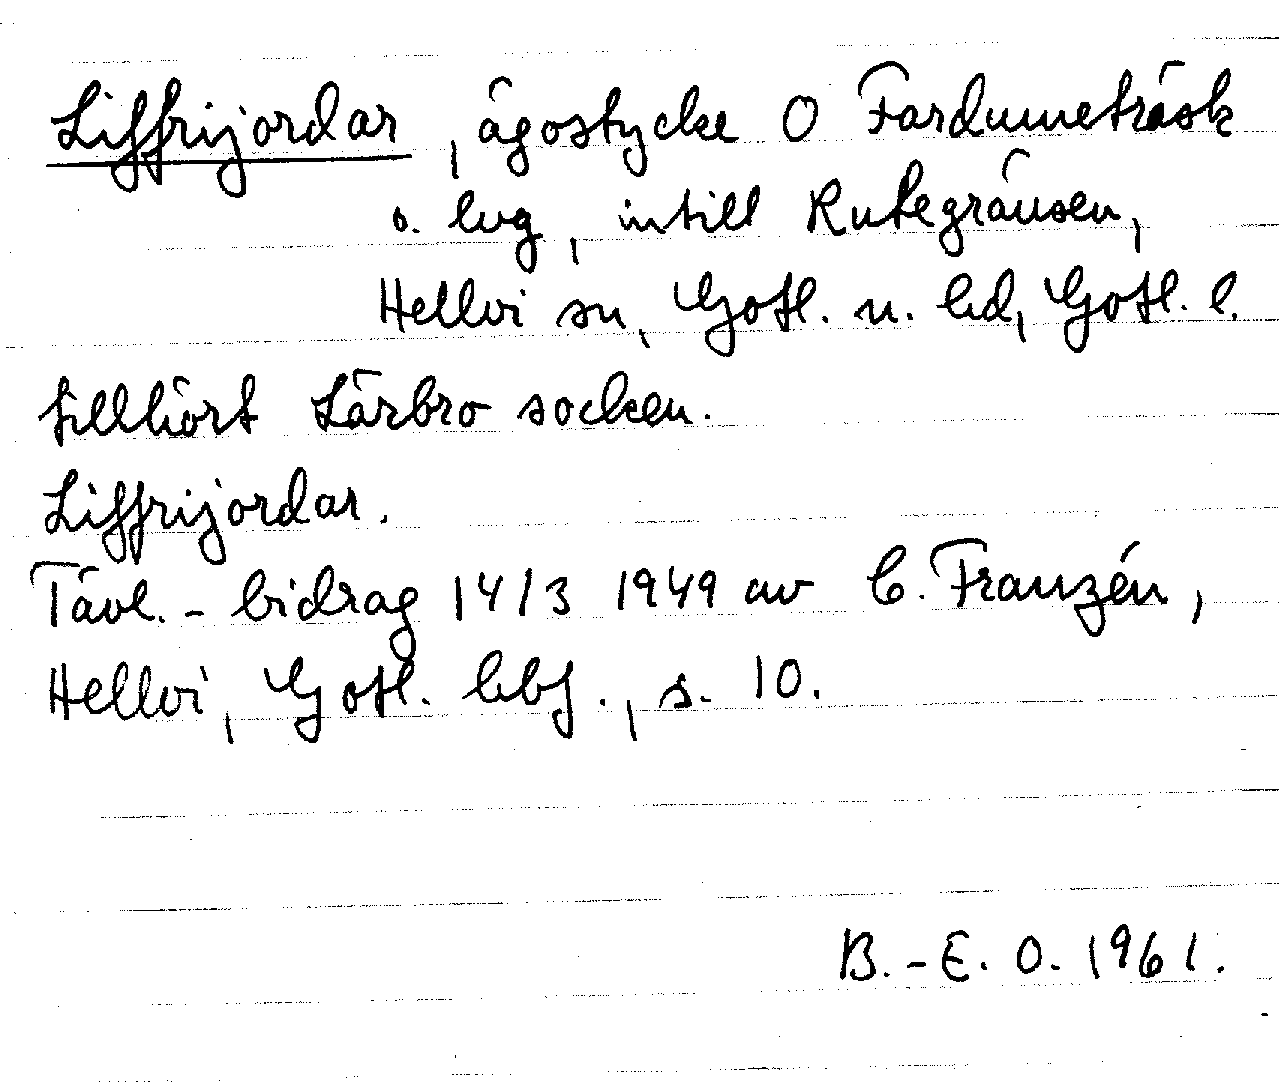 Liffrijordar, ägostycke O Fardumeträsk
o. lvg, intill Rutegränsen,
Hellvi sn, Gotl. n. hd, Gotl. l.
tillhört Lärbro socken.
Liffrijordar.
Tävl.-bidrag 14/3 1949 av C. Franzén,
Hellvi, Gotl. hbf., s. 10.
B.-E. O. 1961.